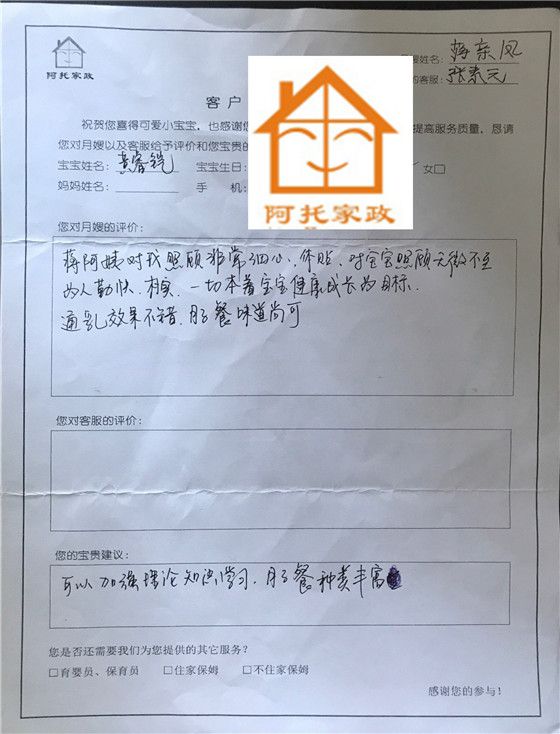 阿托家政
嫂姓名：蒋东凤
的客服：张素元
客户
阿托家政
祝贺您喜得可爱小宝宝，也感谢您
提高服务质量，恳请
您对月嫂以及客服给予评价和您宝贵的
宝宝姓名：黄睿铠 宝宝生日： 女□
妈妈姓名： 手 机：
您对月嫂的评价：
蒋阿姨对我照顾非常细心、体贴，对宝宝照顾无微不至
为人勤快、朴实，一切本着宝宝健康成长为目标．
通乳效果不错．月子餐味道尚可
您对客服的评价：
您的宝贵建议：
可以加强理论知识学习．月子餐种类丰富
您是否还需要我们为您提供的其它服务？
□育婴员、保育员 □住家保姆 □不住家保姆
感谢您的参与！